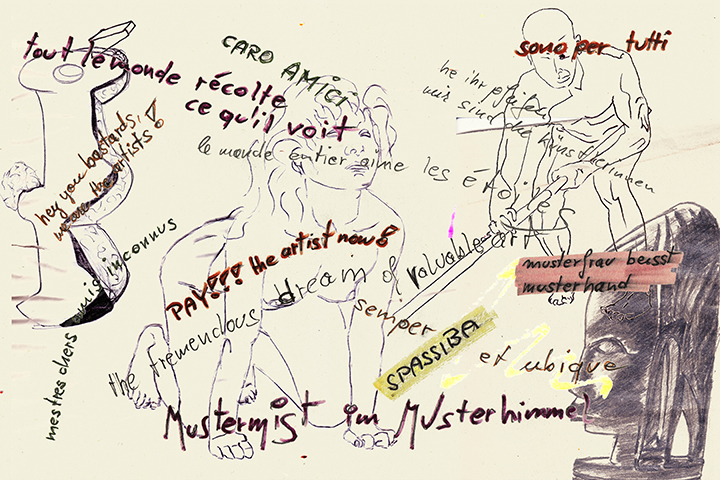 CARO AMICI
sono per tutti
tout le monde récolte
ce qu'il voit
he ihr pfeifen
wir sind die künstlerinnen
hey you bastards,
we are the artists!
le monde entier aime les étoiles
mes tres chers amis inconnus
PAY!!! the artist now!
the tremendous dream of valuable art
semper
et ubique
musterfrau beisst
musterhand
SPASSIBA
Mustermist im Musterhimmel